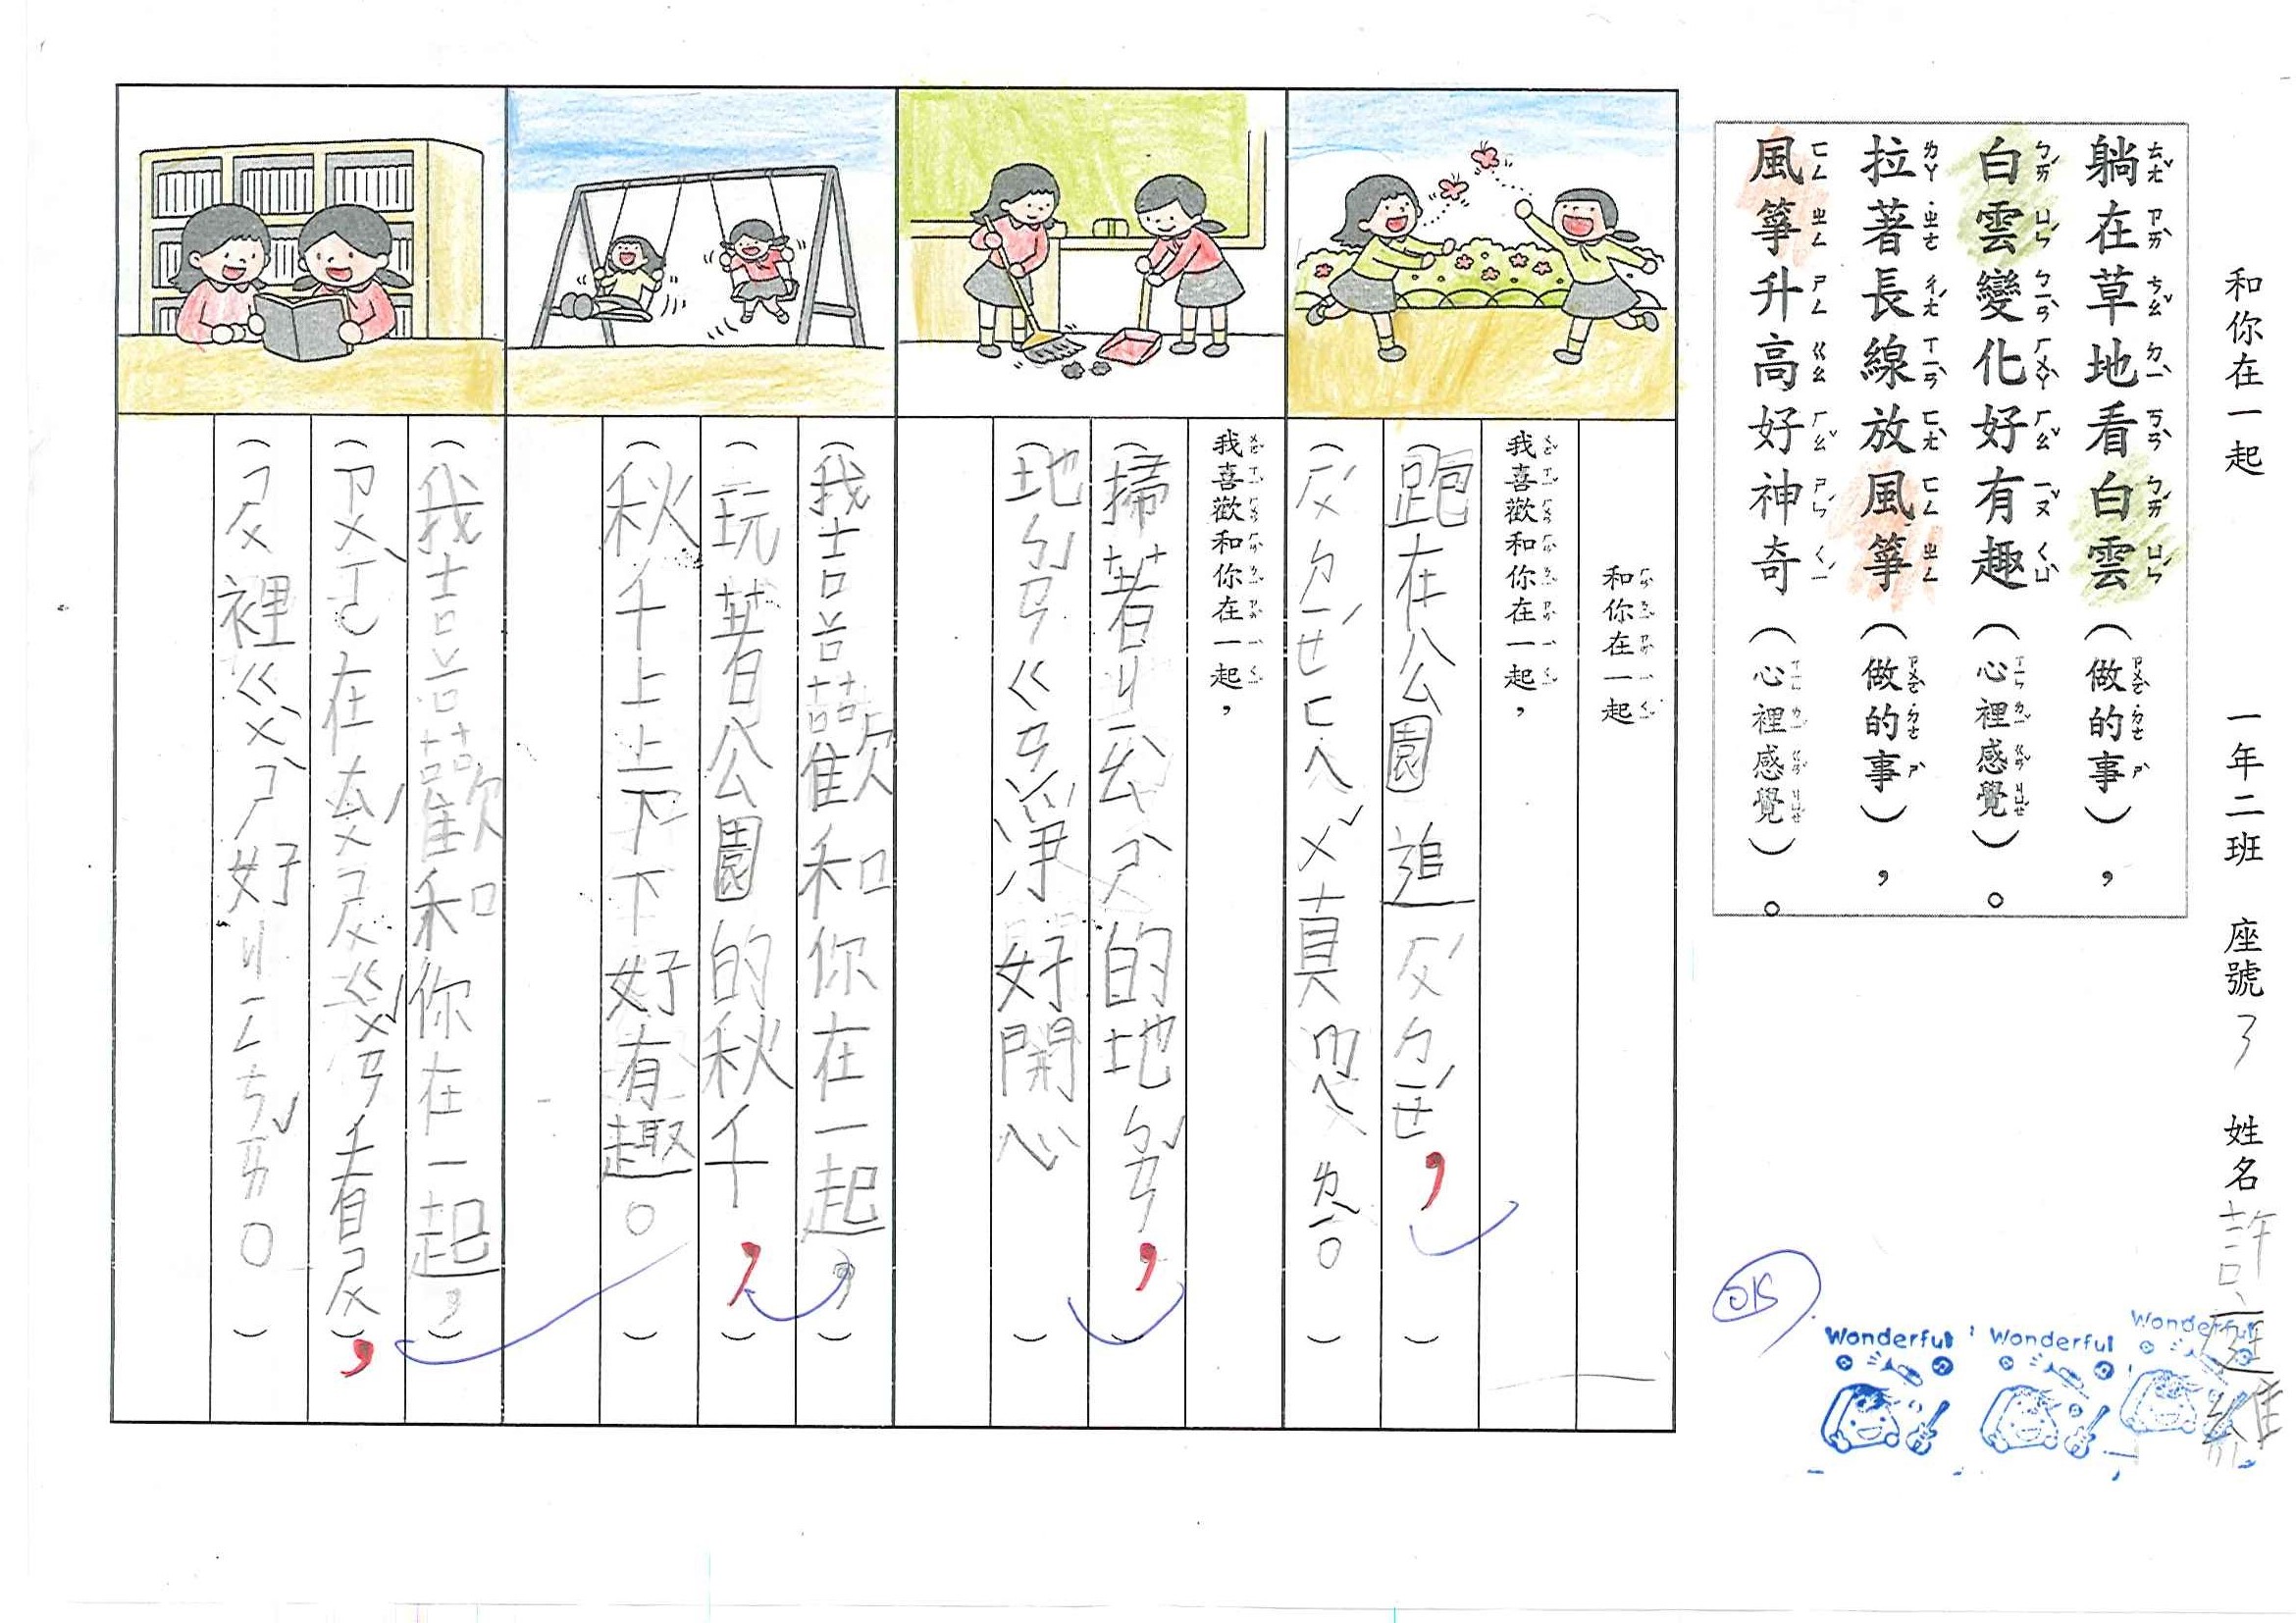 和你在一起 一年二班 座號 3 姓名 許
躺在草地看白雲(做的事),
白雲變化好有趣(心裡感覺)。
拉著長線放風箏(做的事),
風箏升高好神奇(心裡感覺)。
和你在一起
我喜歡和你在一起,
(跑在公園追ㄏㄨˊㄉㄧㄝˊ,)
我喜歡和你在一起,
(掃著ㄐㄧㄠˋㄕˋ的地ㄅㄢˇ,)
(地ㄅㄢˇㄍㄢ淨好開心)
(我喜歡和你在一起,)
(玩著公園的秋千,)
(秋千上上下下好有趣。)
(我喜歡和你在一起,)
(ㄗㄨㄛˋ在ㄊㄨˊㄕㄨㄍㄨㄢˇ看ㄕㄨ),
(ㄕㄨ裡ㄍㄨˋㄕˋ好ㄐㄧㄥㄘㄞˇ。)
OK
Wonderful
Wonderful
Wonderful